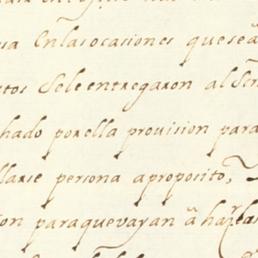 sa En las ocasiones que se a
tos Se le entregaron al Sr
hado por ella provision para
llarse persona aproposito,
ion para que vayan a hazer